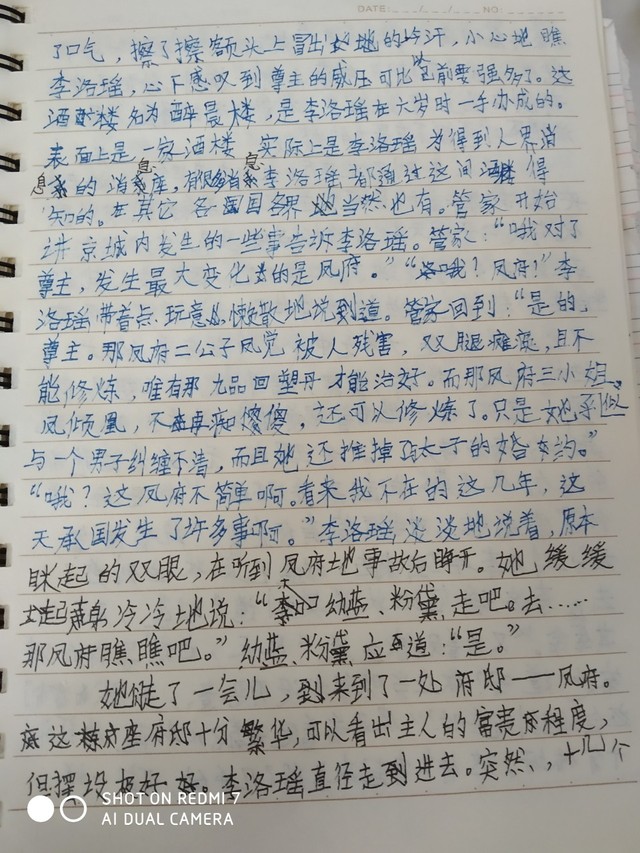 DATE: / / NO:
了口气，擦了擦额头上冒出的汗，小心地瞧
李洛瑶，心下感叹到尊主的威压可比之前要强多了。这
酒楼名为醉晨楼，是李洛瑶在六岁时一手办成的。
表面上是一家酒楼，实际上是李洛瑶为得到人界消
息的消息座，有很多消息李洛瑶都通过这间酒楼得
知的。在其它各国各界地当然也有。管家开始
讲京城内发生的一些事告诉李洛瑶。管家：“哦对了
尊主，发生最大变化的是凤府。”“哦？凤府！”李
洛瑶带着点玩意，懒散地说到道。管家回到：“是的，
尊主。那凤府二公子凤党被人残害，双腿瘫痪，且不
能修炼，唯有那九品回塑丹才能治好。而那凤府三小姐
凤倾凰，不再痴傻傻，还可以修炼了。只是她乎似
与一个男子纠缠不清，而且她还推掉了太子的婚约。”
“哦？这凤府不简单啊。看来我不在的这几年，这
天承国发生了许多事啊。”李洛瑶淡淡地说着，原本
眯起的双眼，在听到凤府地事故后睁开。她缓缓
起身冷冷地说：“幼蓝、粉黛走吧。去……
那凤府瞧瞧吧。”幼蓝、粉黛应道：“是。”
她走了一会儿，到来到了一处府邸——凤府。
这座府邸十分繁华，可以看出主人的富贵程度，
但摆设极好。李洛瑶直径走到进去。突然，十几个
SHOT ON REDMI 7
AI DUAL CAMERA